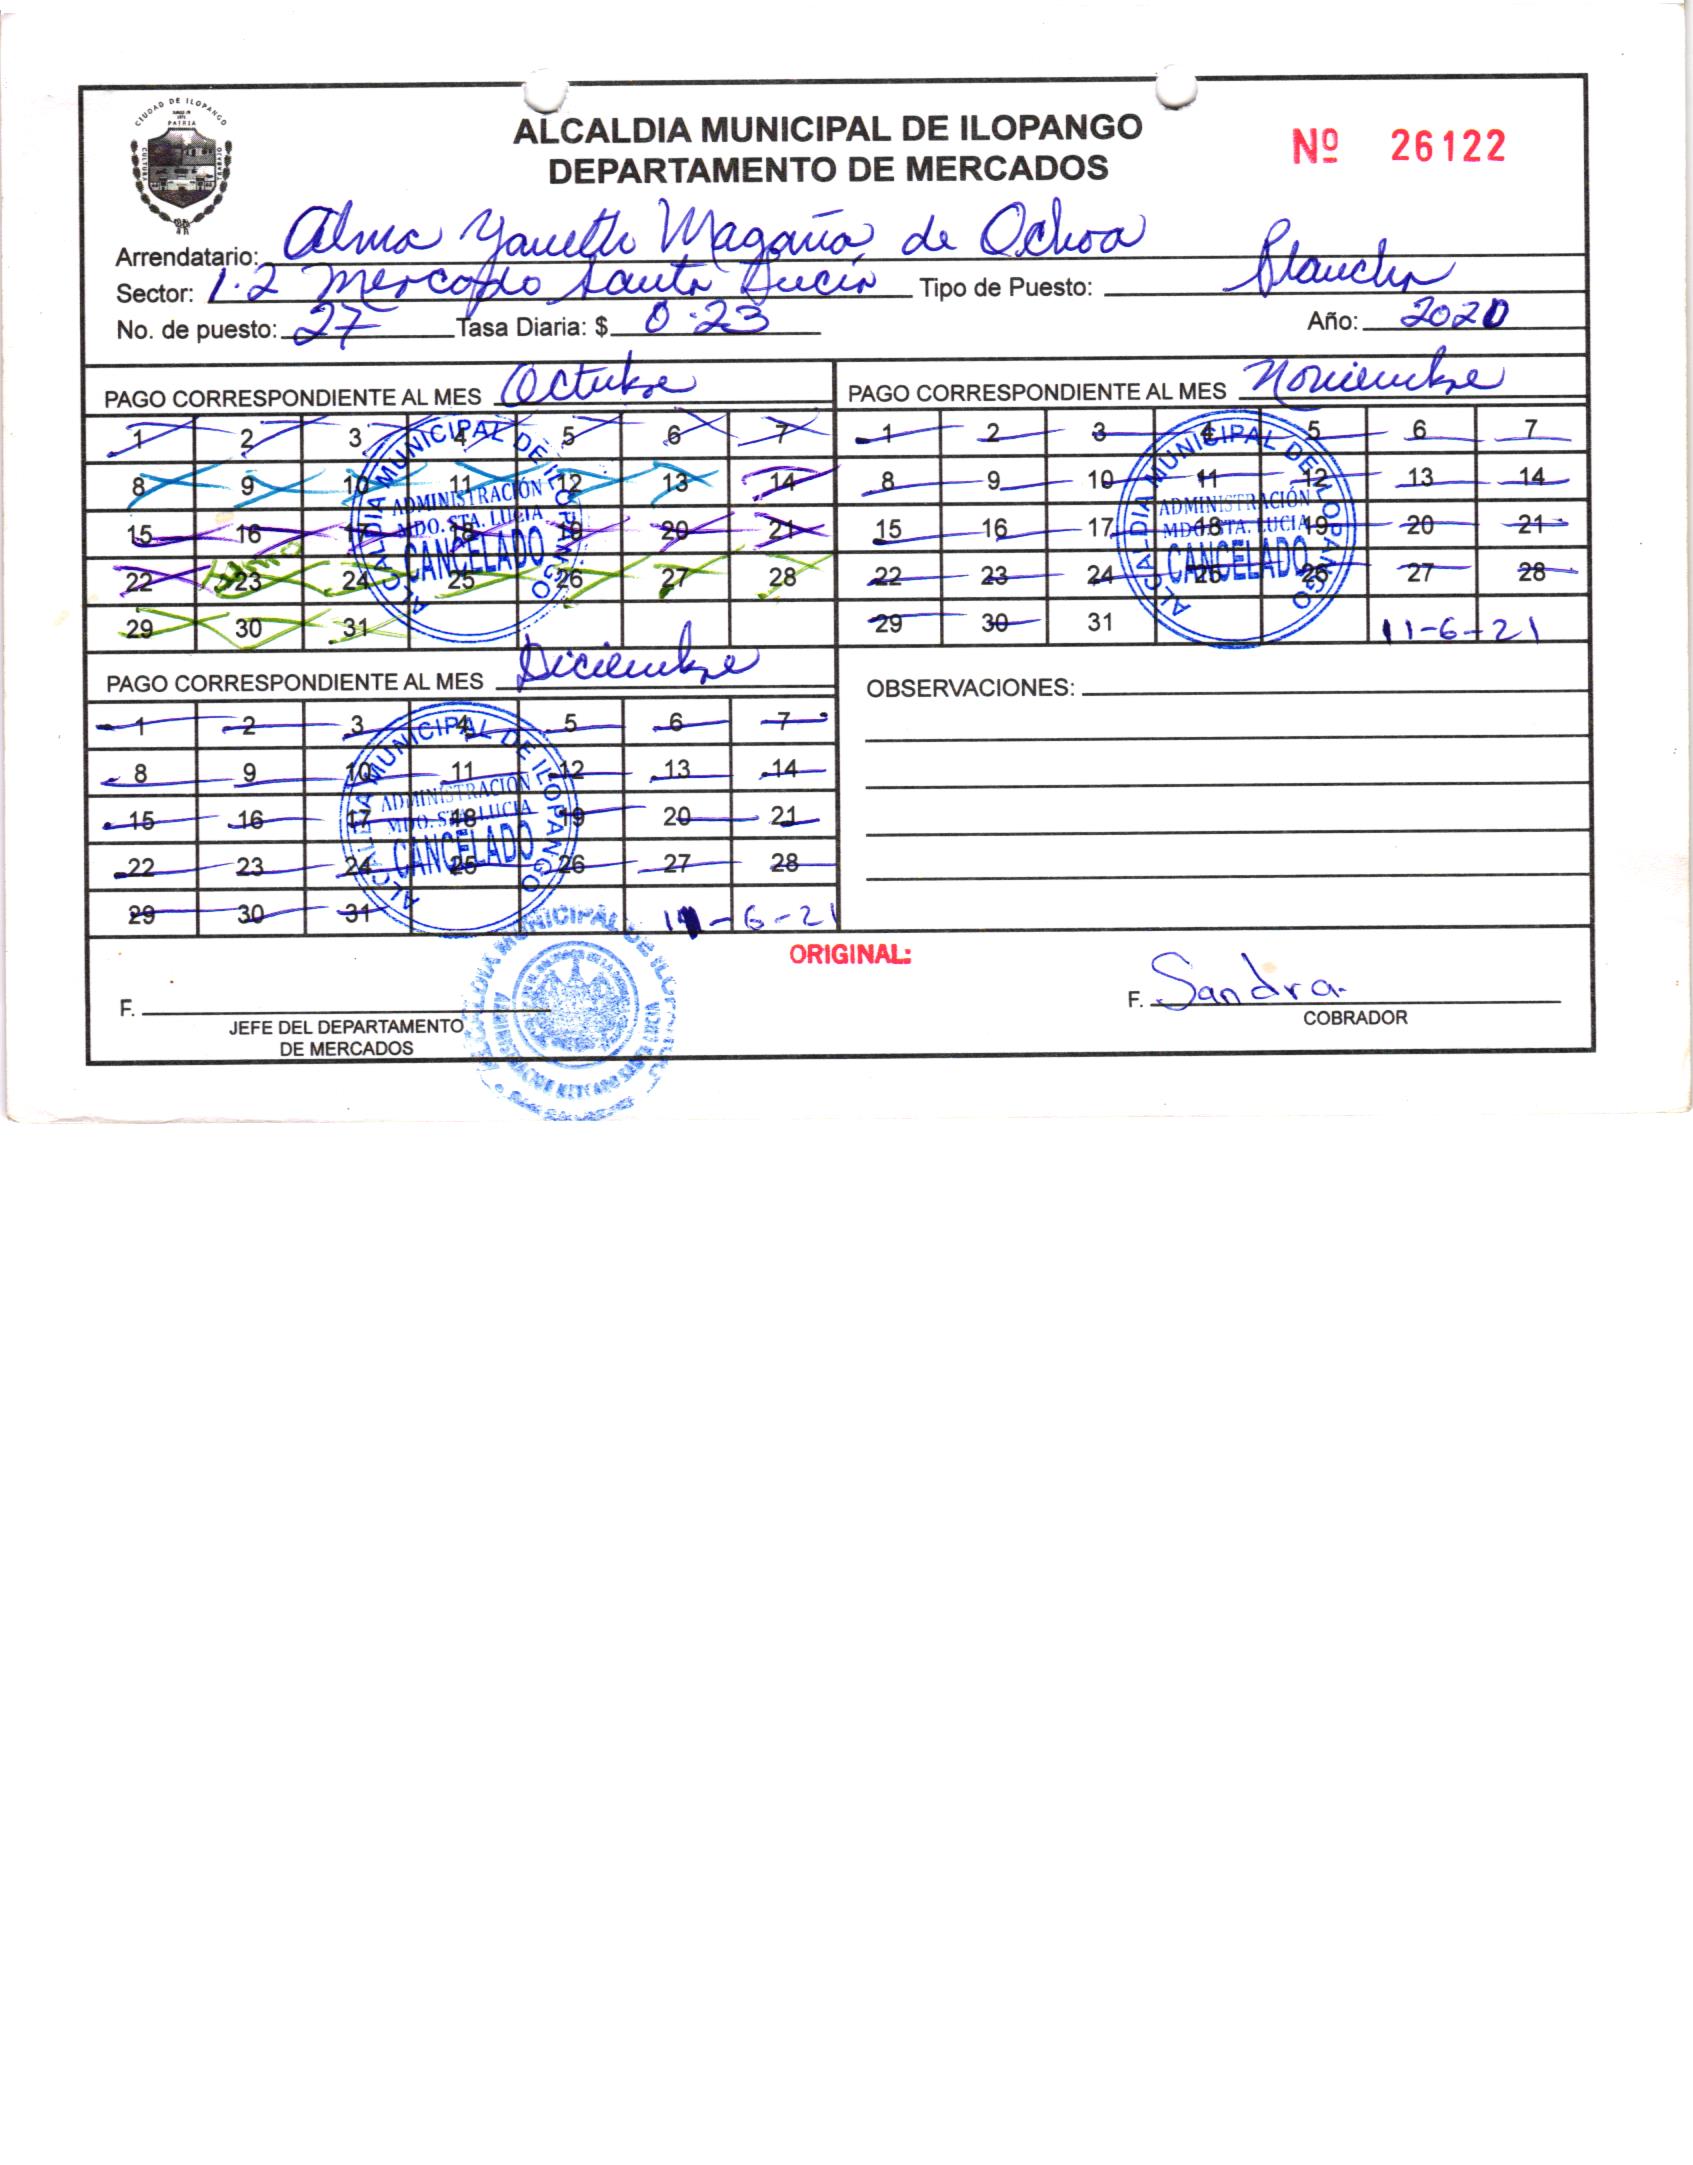 CIUDAD DE ILOPANGO
PATRIA
CULTURA
TRABAJO
ALCALDIA MUNICIPAL DE ILOPANGO
DEPARTAMENTO DE MERCADOS
Nº 26122
Arrendatario: Alma Yaneth Magaña de Ochoa
Sector: 1.2 Mercado Santa Lucía Tipo de Puesto: Plancha
No. de puesto: 27 Tasa Diaria: $ 0.23 Año: 2020
PAGO CORRESPONDIENTE AL MES Octubre
1 2 3 4 5 6 7
8 9 10 11 12 13 14
15 16 17 18 19 20 21
22 23 24 25 26 27 28
29 30 31
ALCALDIA MUNICIPAL DE ILOPANGO
ADMINISTRACIÓN
MDO. STA. LUCIA
CANCELADO
PAGO CORRESPONDIENTE AL MES Noviembre
1 2 3 4 5 6 7
8 9 10 11 12 13 14
15 16 17 18 19 20 21
22 23 24 25 26 27 28
29 30 31 11-6-21
ALCALDIA MUNICIPAL DE ILOPANGO
ADMINISTRACIÓN
MDO. STA. LUCIA
CANCELADO
PAGO CORRESPONDIENTE AL MES Diciembre
1 2 3 4 5 6 7
8 9 10 11 12 13 14
15 16 17 18 19 20 21
22 23 24 25 26 27 28
29 30 31 11-6-21
ALCALDIA MUNICIPAL DE ILOPANGO
ADMINISTRACIÓN
MDO. STA. LUCIA
CANCELADO
OBSERVACIONES:
ORIGINAL:
F.
JEFE DEL DEPARTAMENTO
DE MERCADOS
ALCALDIA MUNICIPAL DE ILOPANGO
ADMINISTRACION MERCADO SANTA LUCIA
F. Sandra.
COBRADOR